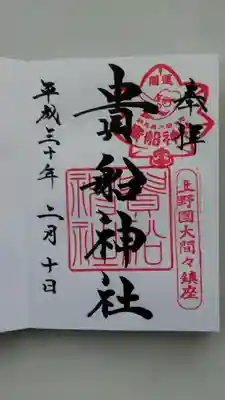 奉拝
開運
貴船神社
上野國大間々鎮座
貴船神社
貴船神社
平成三十年 二月 十日